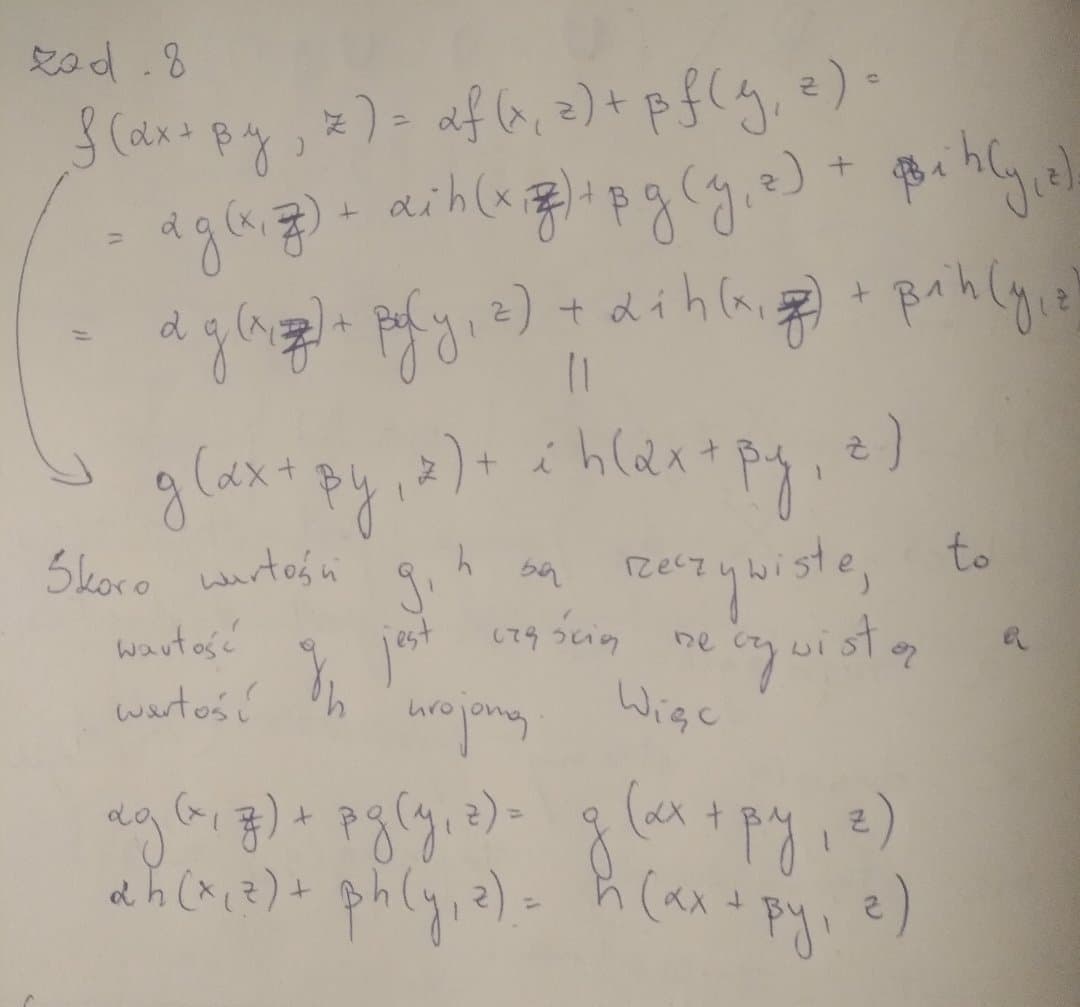 zad. 8
f(αx + βy, z) = αf(x, z) + βf(y, z) =
= αg(x, z) + αih(x, z) + βg(y, z) + βih(y, z) =
= αg(x, z) + βg(y, z) + αih(x, z) + βih(y, z)
||
g(αx + βy, z) + ih(αx + βy, z)
Skoro wartości g, h są rzeczywiste, to
wartość g jest częścią rzeczywistą a
wartość h urojoną. Więc
αg(x, z) + βg(y, z) = g(αx + βy, z)
αh(x, z) + βh(y, z) = h(αx + βy, z)